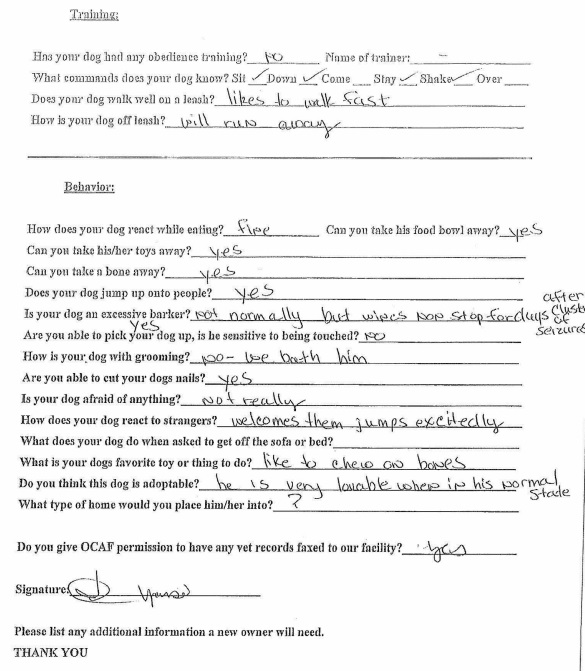 Training:
Has your dog had any obedience training? NO Name of trainer: -
What commands does your dog know? Sit ✓ Down ✓ Come ___ Stay ✓ Shake ✓ Over ___
Does your dog walk well on a leash? likes to walk fast
How is your dog off leash? will run away
Behavior:
How does your dog react while eating? fine Can you take his food bowl away? yes
Can you take his/her toys away? yes
Can you take a bone away? yes
Does your dog jump up onto people? yes
Is your dog an excessive barker? not normally but wines non stop for days after clust of seizures
Are you able to pick your dog up, is he sensitive to being touched? yes NO
How is your dog with grooming? no - we bath him
Are you able to cut your dogs nails? yes
Is your dog afraid of anything? not really
How does your dog react to strangers? welcomes them jumps excitedly
What does your dog do when asked to get off the sofa or bed?
What is your dogs favorite toy or thing to do? like to chew on bones
Do you think this dog is adoptable? he is very lovable when in his normal state
What type of home would you place him/her into? ?
Do you give OCAF permission to have any vet records faxed to our facility? yes
Signature:
Please list any additional information a new owner will need.
THANK YOU